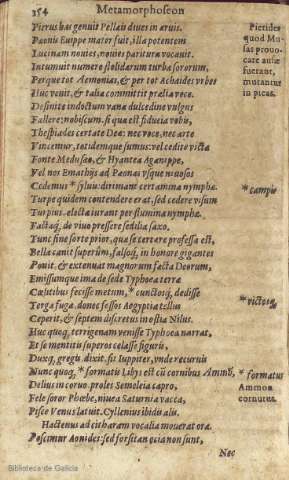 354
Metamorphoseon
Pierus has genuit Pellæis dives in arvis.
Pæonis Euippe mater fuit, illa potentem
Lucinam novies, novies paritura vocavit.
Intumuit numero stolidarum turba sororum,
Perque tot Aemonias, & per tot Achaidas urbes
Huc venit, & talia committit prælia voce.
Desinite indoctum vana dulcedine vulgus
Fallere: nobiscum, si qua est fiducia vobis,
Thespiades certate Deæ: nec voce, nec arte
Vincemur, totidemque sumus: vel cedite victæ
Fonte Medusæo, & Hyantea Aganippe,
Vel nos Emathijs ad Pæonas usque nivosos
Cedemus * sylvis: dirimant certamina nymphæ.
Turpe quidem contendere erat, sed cedere visum
Turpius. electæ iurant per flumina nymphæ.
Factaq́; de vivo pressere sedilia saxo.
Tunc sine sorte prior, quæ se certare professa est,
Bella canit superûm, falsoq́; in honore gigantes
Ponit, & extenuat magnorum facta Deorum,
Emissumque ima de sede Typhoea terræ
Cælitibus fecisse metum, * cunctosq́; dedisse
Terga fugæ. donec fessos Aegyptia tellus
Ceperit, & septem discretus in ostia Nilus.
Huc quoq; terrigenam venisse Typhoea narrat,
Et se mentitis superos celasse figuris,
Duxq; gregis dixit, fit Iuppiter, unde recurvis
Nunc quoq; * formatis Libys est cũ cornibus Ammõ,
Delius in corvo. proles Semeleia capro,
Fele soror Phœbe, nivea Saturnia vacca,
Pisce Venus latuit. Cyllenius ibidis alis.
Hactenus ad citharam vocalia moverat ora.
Poscimur Aonides: sed forsitan ocia non sunt,
Nec
Pierides
quod Mu-
sas provo-
care ausæ
fuerant,
mutantur
in picas.
* campis
* victosq́;
* formatus
Ammon
cornutus.
Biblioteca de Galicia